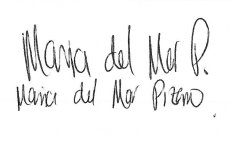 Maria del Mar P.
Maria del Mar Pizarro.